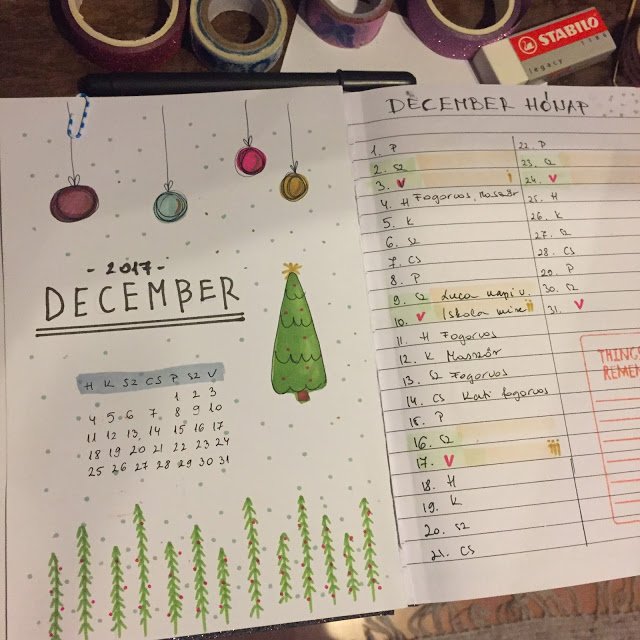 STABILO
legacy
- 2017 -
DECEMBER
H K SZ CS P SZ V
1 2 3
4 5 6 7 8 9 10
11 12 13 14 15 16 17
18 19 20 21 22 23 24
25 26 27 28 29 30 31
DECEMBER HÓNAP
1. P
2. SZ
3. V
4. H Fogorvos, Masszőr
5. K
6. SZ
7. CS
8. P
9. SZ Luca napi v.
10. V Iskola
11. H Fogorvos
12. K Masszőr
13. SZ Fogorvos
14. CS Kati fogorvos
15. P
16. SZ
17. V
18. H
19. K
20. SZ
21. CS
22. P
23. SZ
24. V
25. H
26. K
27. SZ
28. CS
29. P
30. SZ
31. V
THINGS
REMEM